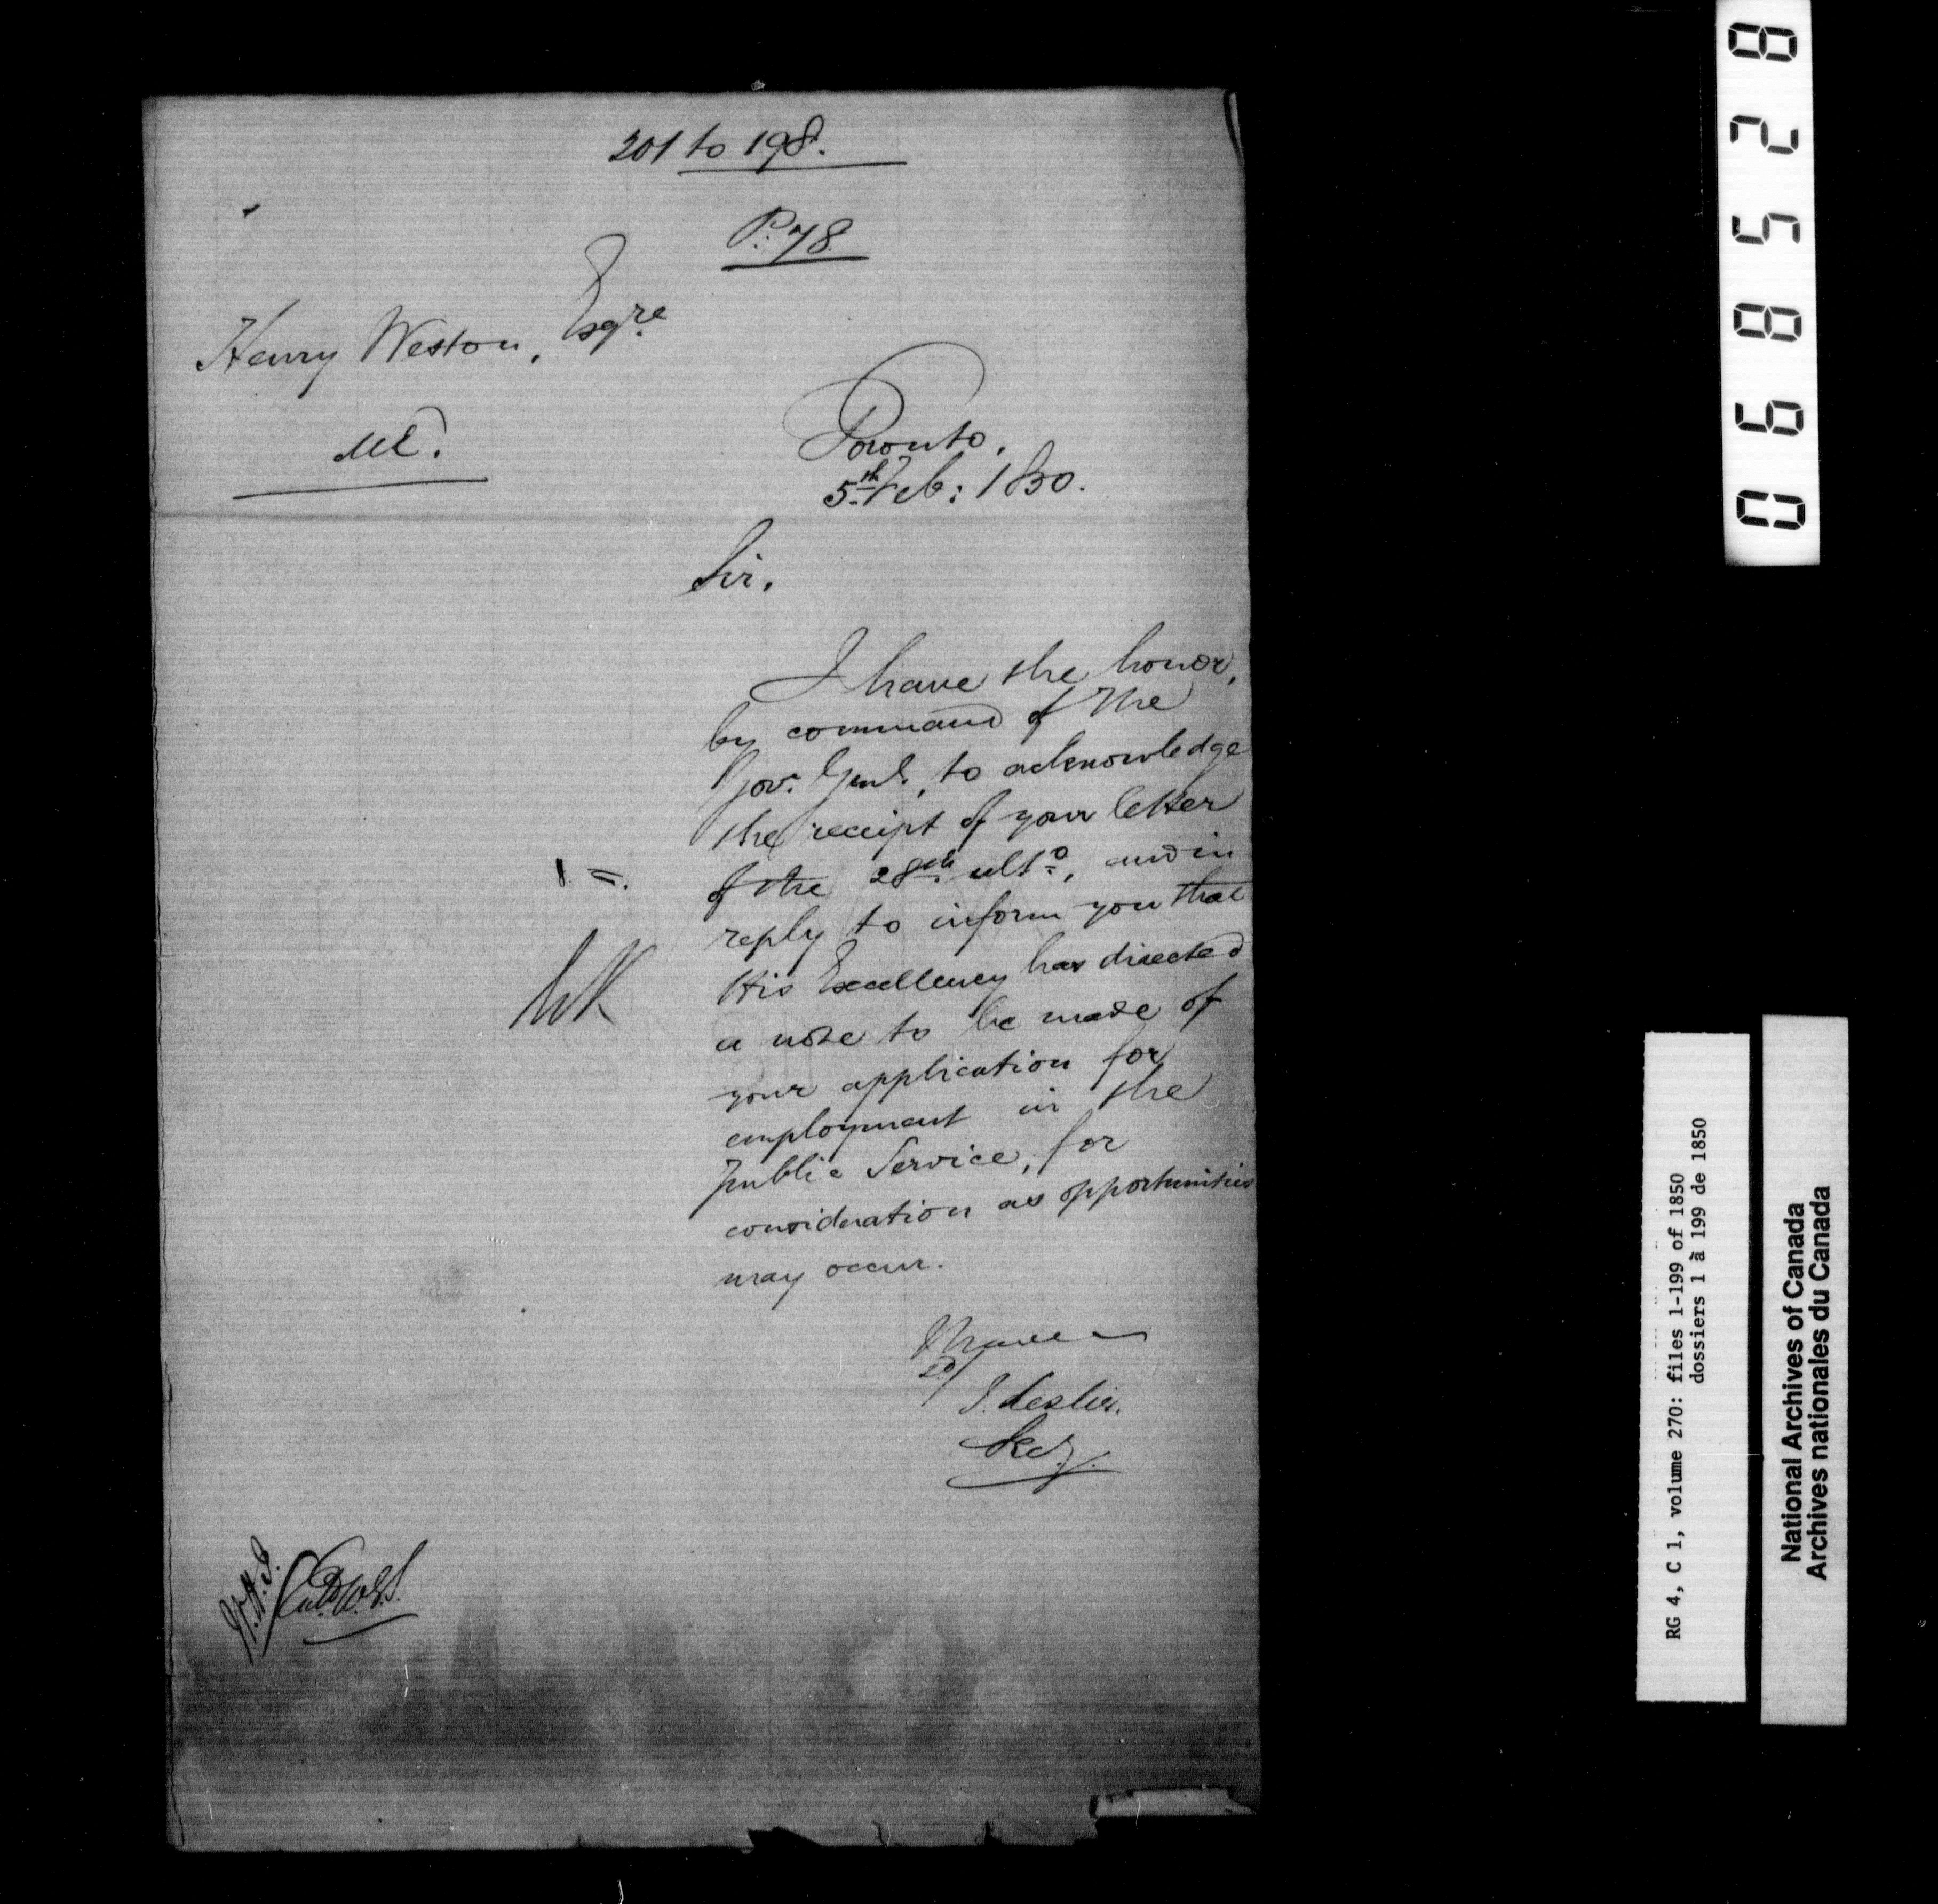 201 to 198.
P. 78
Henry Weston, Esqre
Toronto,
5th Feb: 1850.
Sir,
I have the honor,
by command of the
Gov. Genl., to acknowledge
the receipt of your letter
of the 28th ulto, and in
reply to inform you that
His Excellency has directed
a note to be made of
your application for
employment in the
Public Service, for
consideration as opportunities
may occur.
I have
J. Leslie.
Secy.
068528
RG 4, C 1, volume 270: files 1-199 of 1850
dossiers 1 à 199 de 1850
National Archives of Canada
Archives nationales du Canada